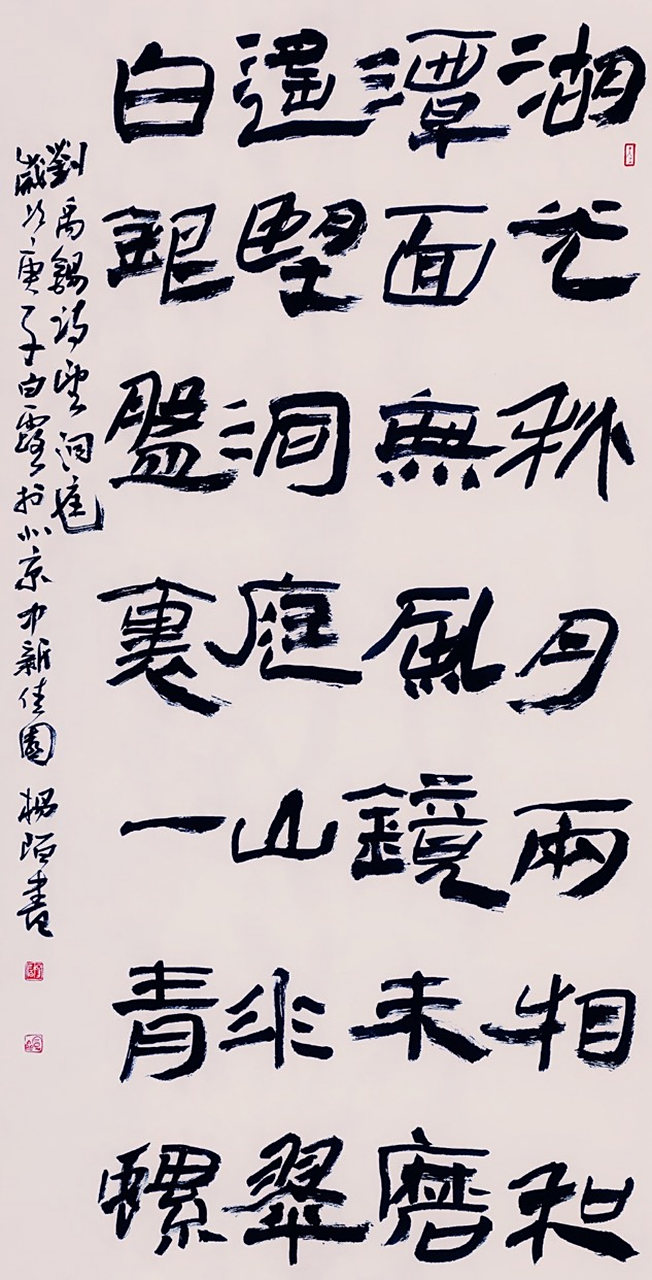 湖光秋月兩相和
潭面無風鏡未磨
遙望洞庭山水翠
白銀盤裏一青螺
劉禹錫詩望洞庭
歲次庚子白露於北京中新佳園 楊陌書